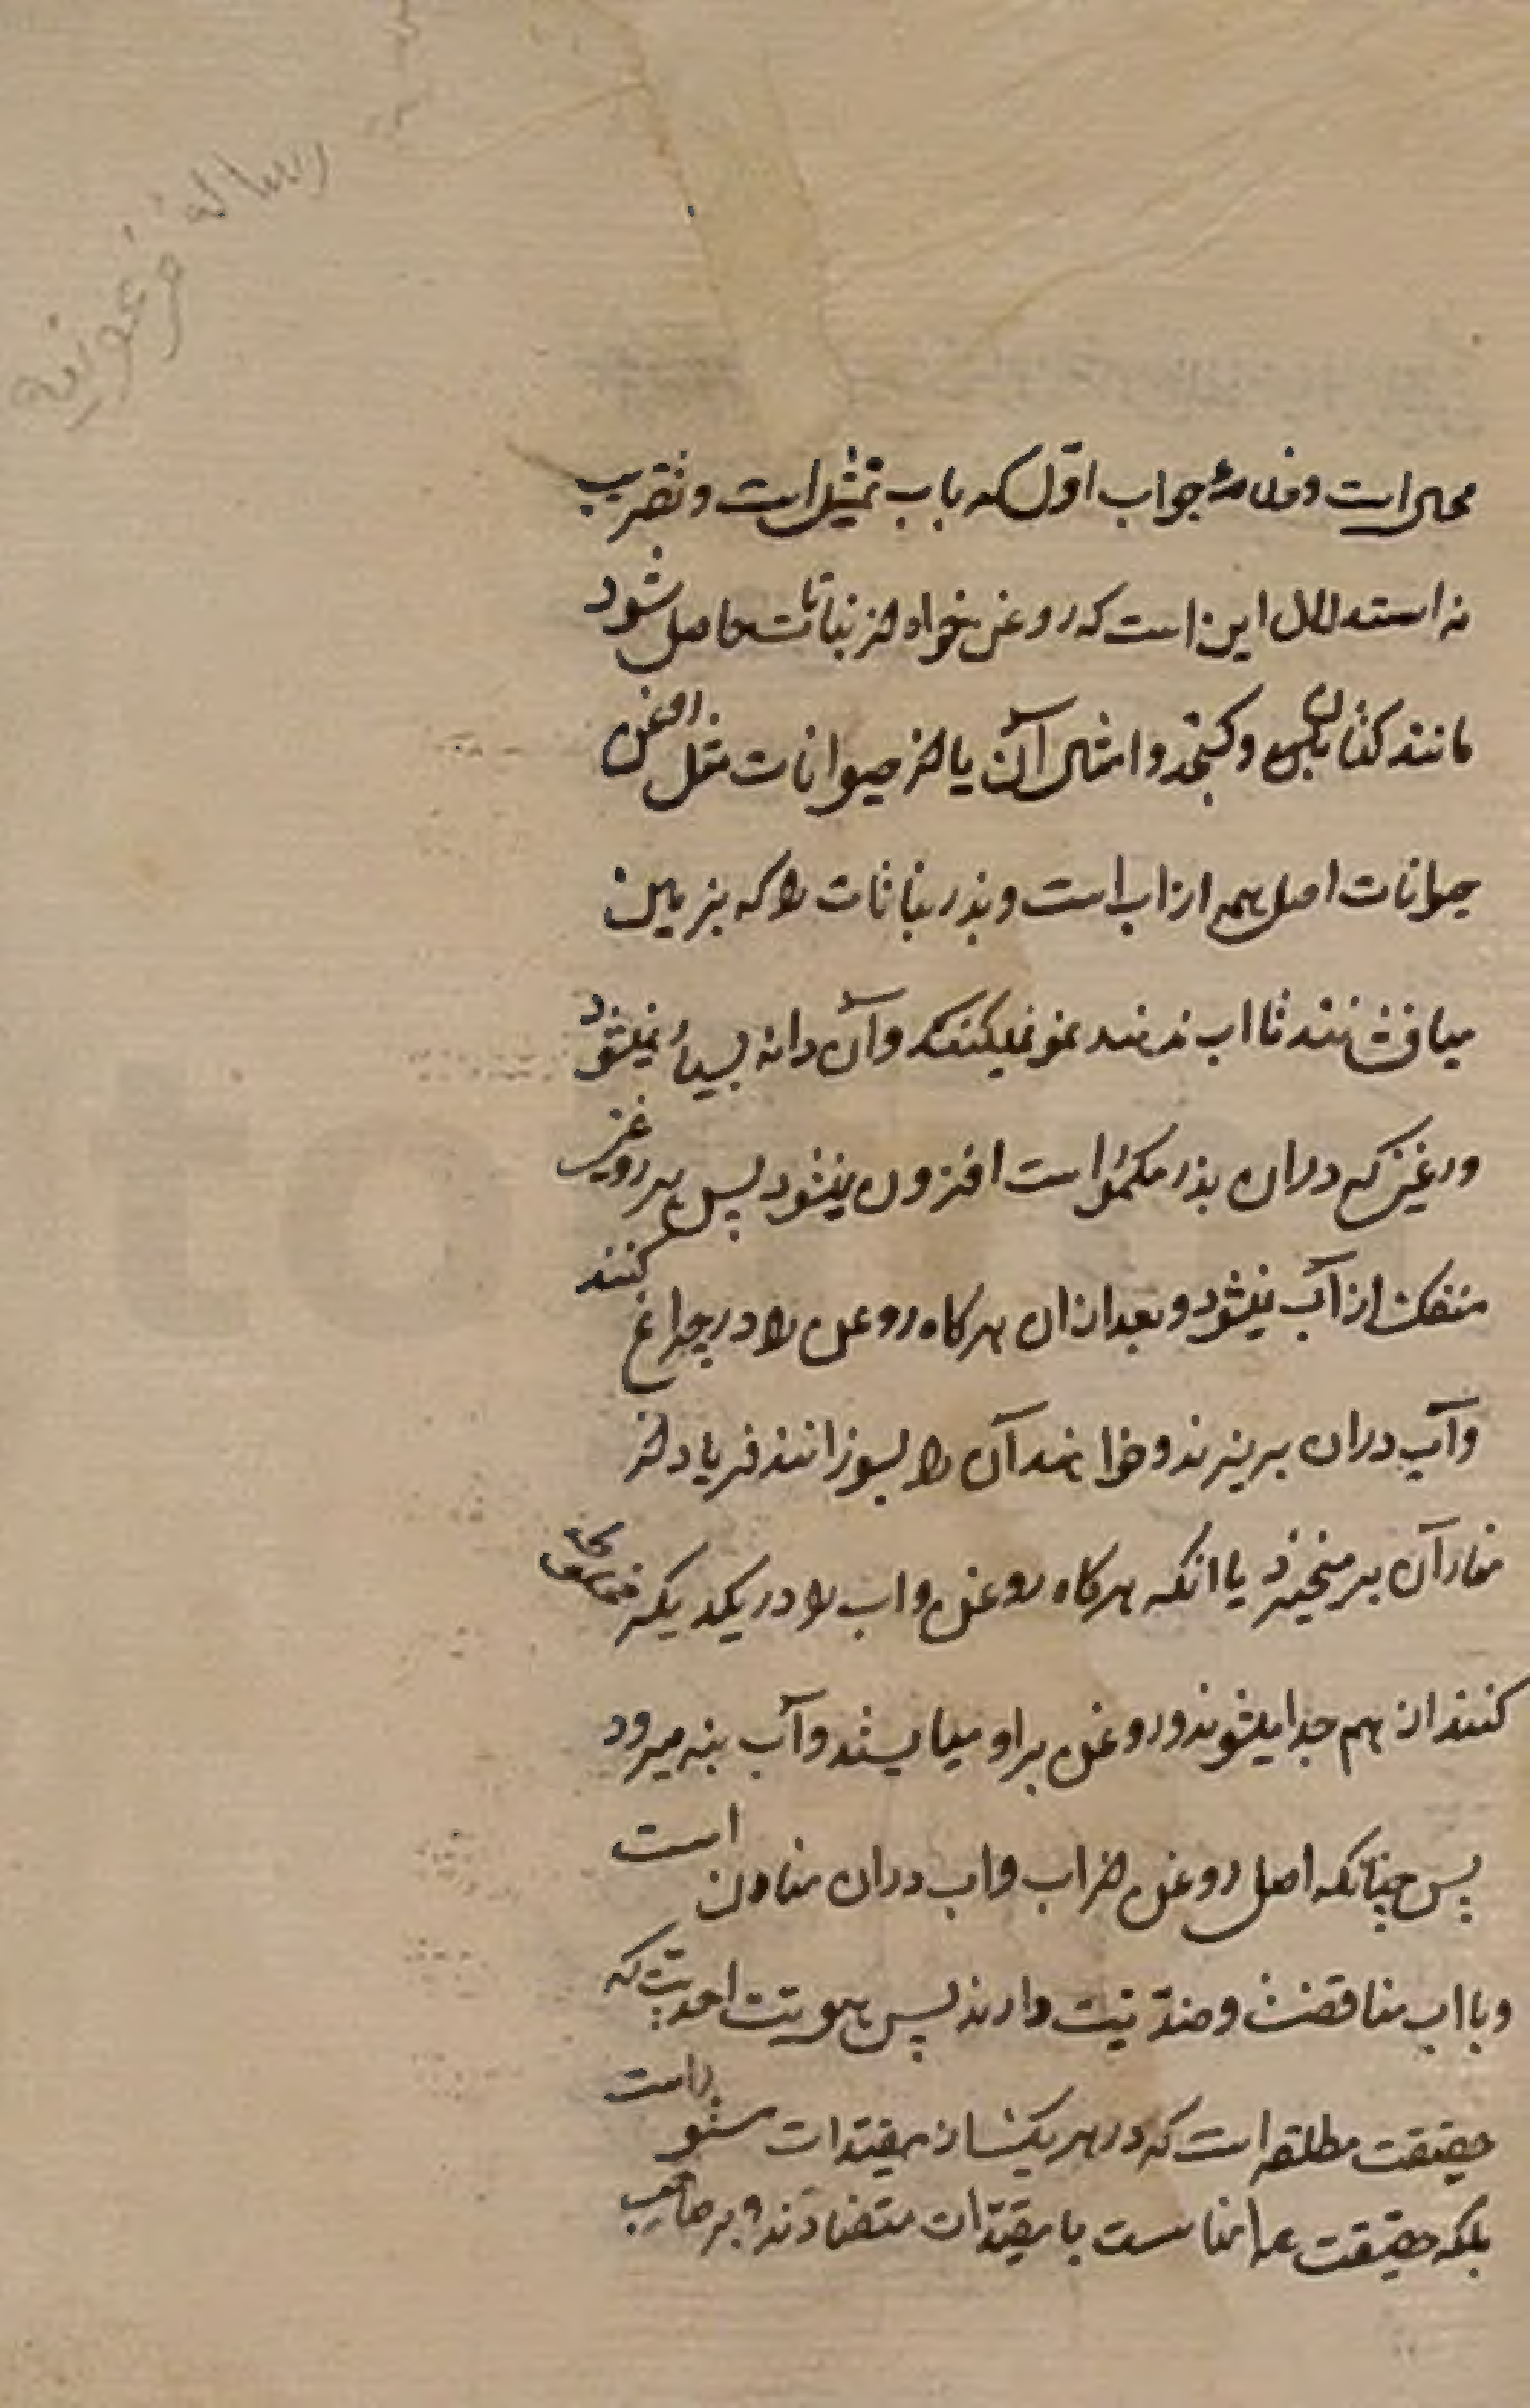 رساله فرعونیه
محال است و جواب اول که باب تمثیل است و تقریب
نه استدلال این است که روغن خواه از نباتات حاصل شود
مانند کتان و کنجد و امثال آن یا از حیوانات مثل روغن
حیوانات اصل همه از اب است و بذر نباتات را که بزمین
میافشانند تا اب ندهند نمو نمیکنند وآن دانه بسیار نمیشود
وروغنی که دران بذر است افزون نمیشود پس هر روغنی
منفک از آب نمیشود و بعد ازان هرکاه روغن را در چراغ کنند
وآب دران بریزند و خواهند آن را بسوزانند فریاد از
نهاد آن برمیخیزد یا انکه هرکاه روغن واب را در یکدیگر
کنند از هم جدا میشوند و روغن بر او میایستد وآب بته میرود
پس چنانکه اصل روغن از اب واب دران است
وبا اب مناقضت و ضدّیت دارند پس هویّت احدیّت که
حقیقت مطلقه است که در هریک از مقیّدات است
بلکه حقیقت با مقیّدات متضادّند و بر